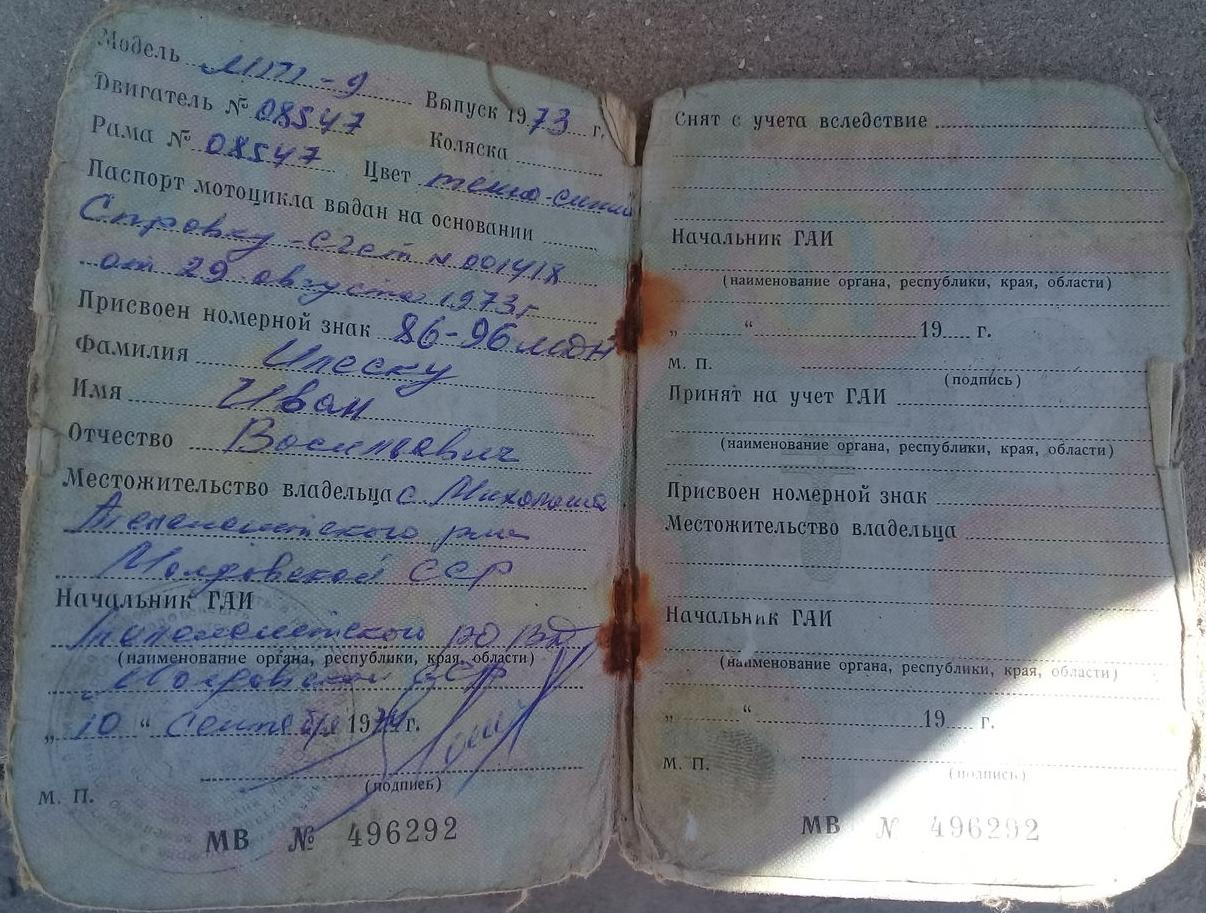 Модель МТ-9 Выпуск 1973 г.
Двигатель № 08547 Коляска
Рама № 08547 Цвет темно-синий
Паспорт мотоцикла выдан на основании
Справку-счет № 001418
от 29 августа 1973г
Присвоен номерной знак 86-96 мдн
Фамилия Илеску
Имя Иван
Отчество Васильевич
Местожительство владельца с.
Молдовской ССР
Начальник ГАИ
(наименование органа, республики, края, области)
Молдовской ССР
„ 10 “ сентября 1974 г.
(подпись)
М. П.
МВ № 496292
Снят с учета вследствие
Начальник ГАИ
(наименование органа, республики, края, области)
„ “ 19 г.
М. П.
(подпись)
Принят на учет ГАИ
(наименование органа, республики, края, области)
Присвоен номерной знак
Местожительство владельца
Начальник ГАИ
(наименование органа, республики, края, области)
„ “ 19 г.
М. П.
(подпись)
МВ № 496292